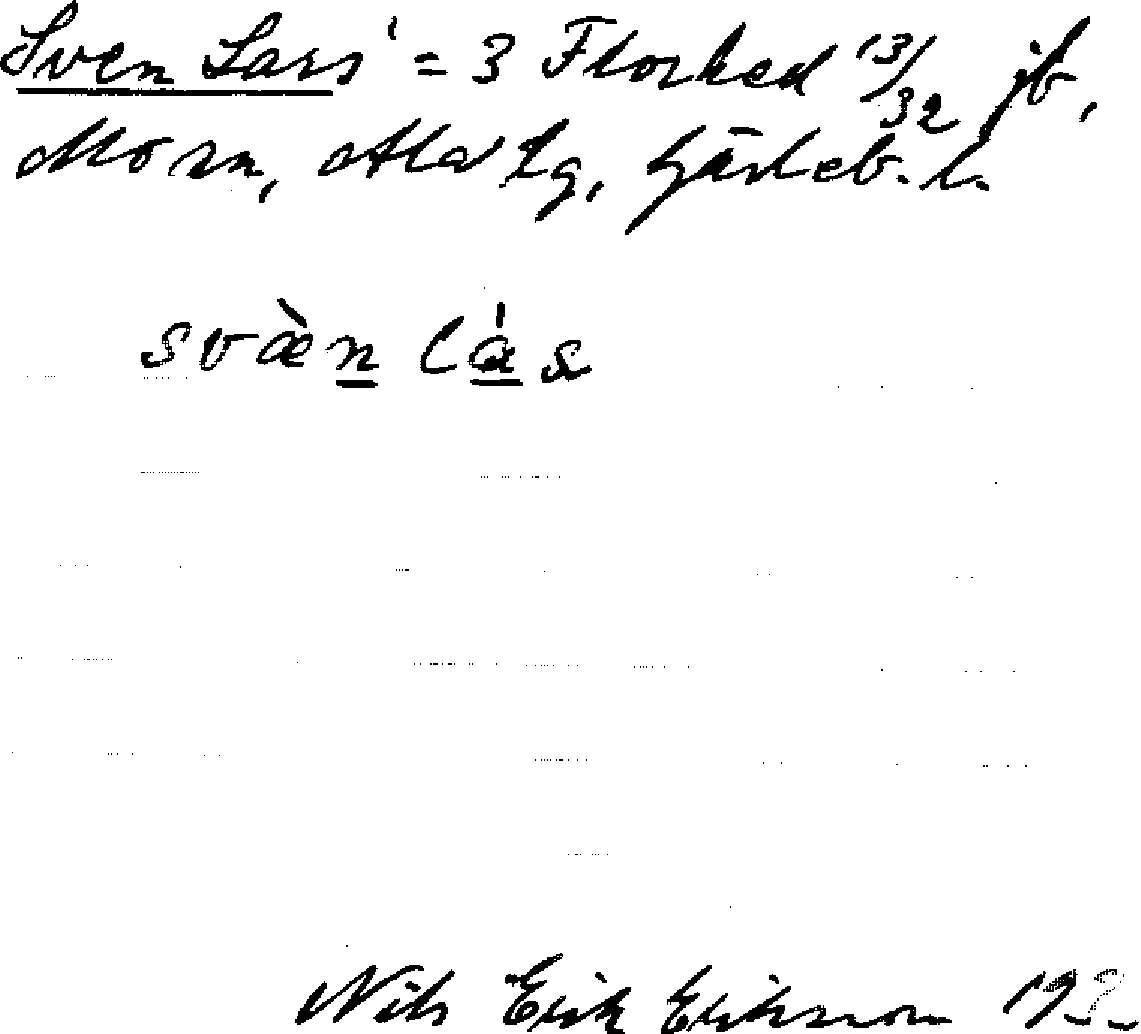 Sven Lars' = 3 Florhed 13/32 jb,
Morn, Ala lg, Gästeb. l.
svæ̀n lás
Nils Erik Eriksson 193